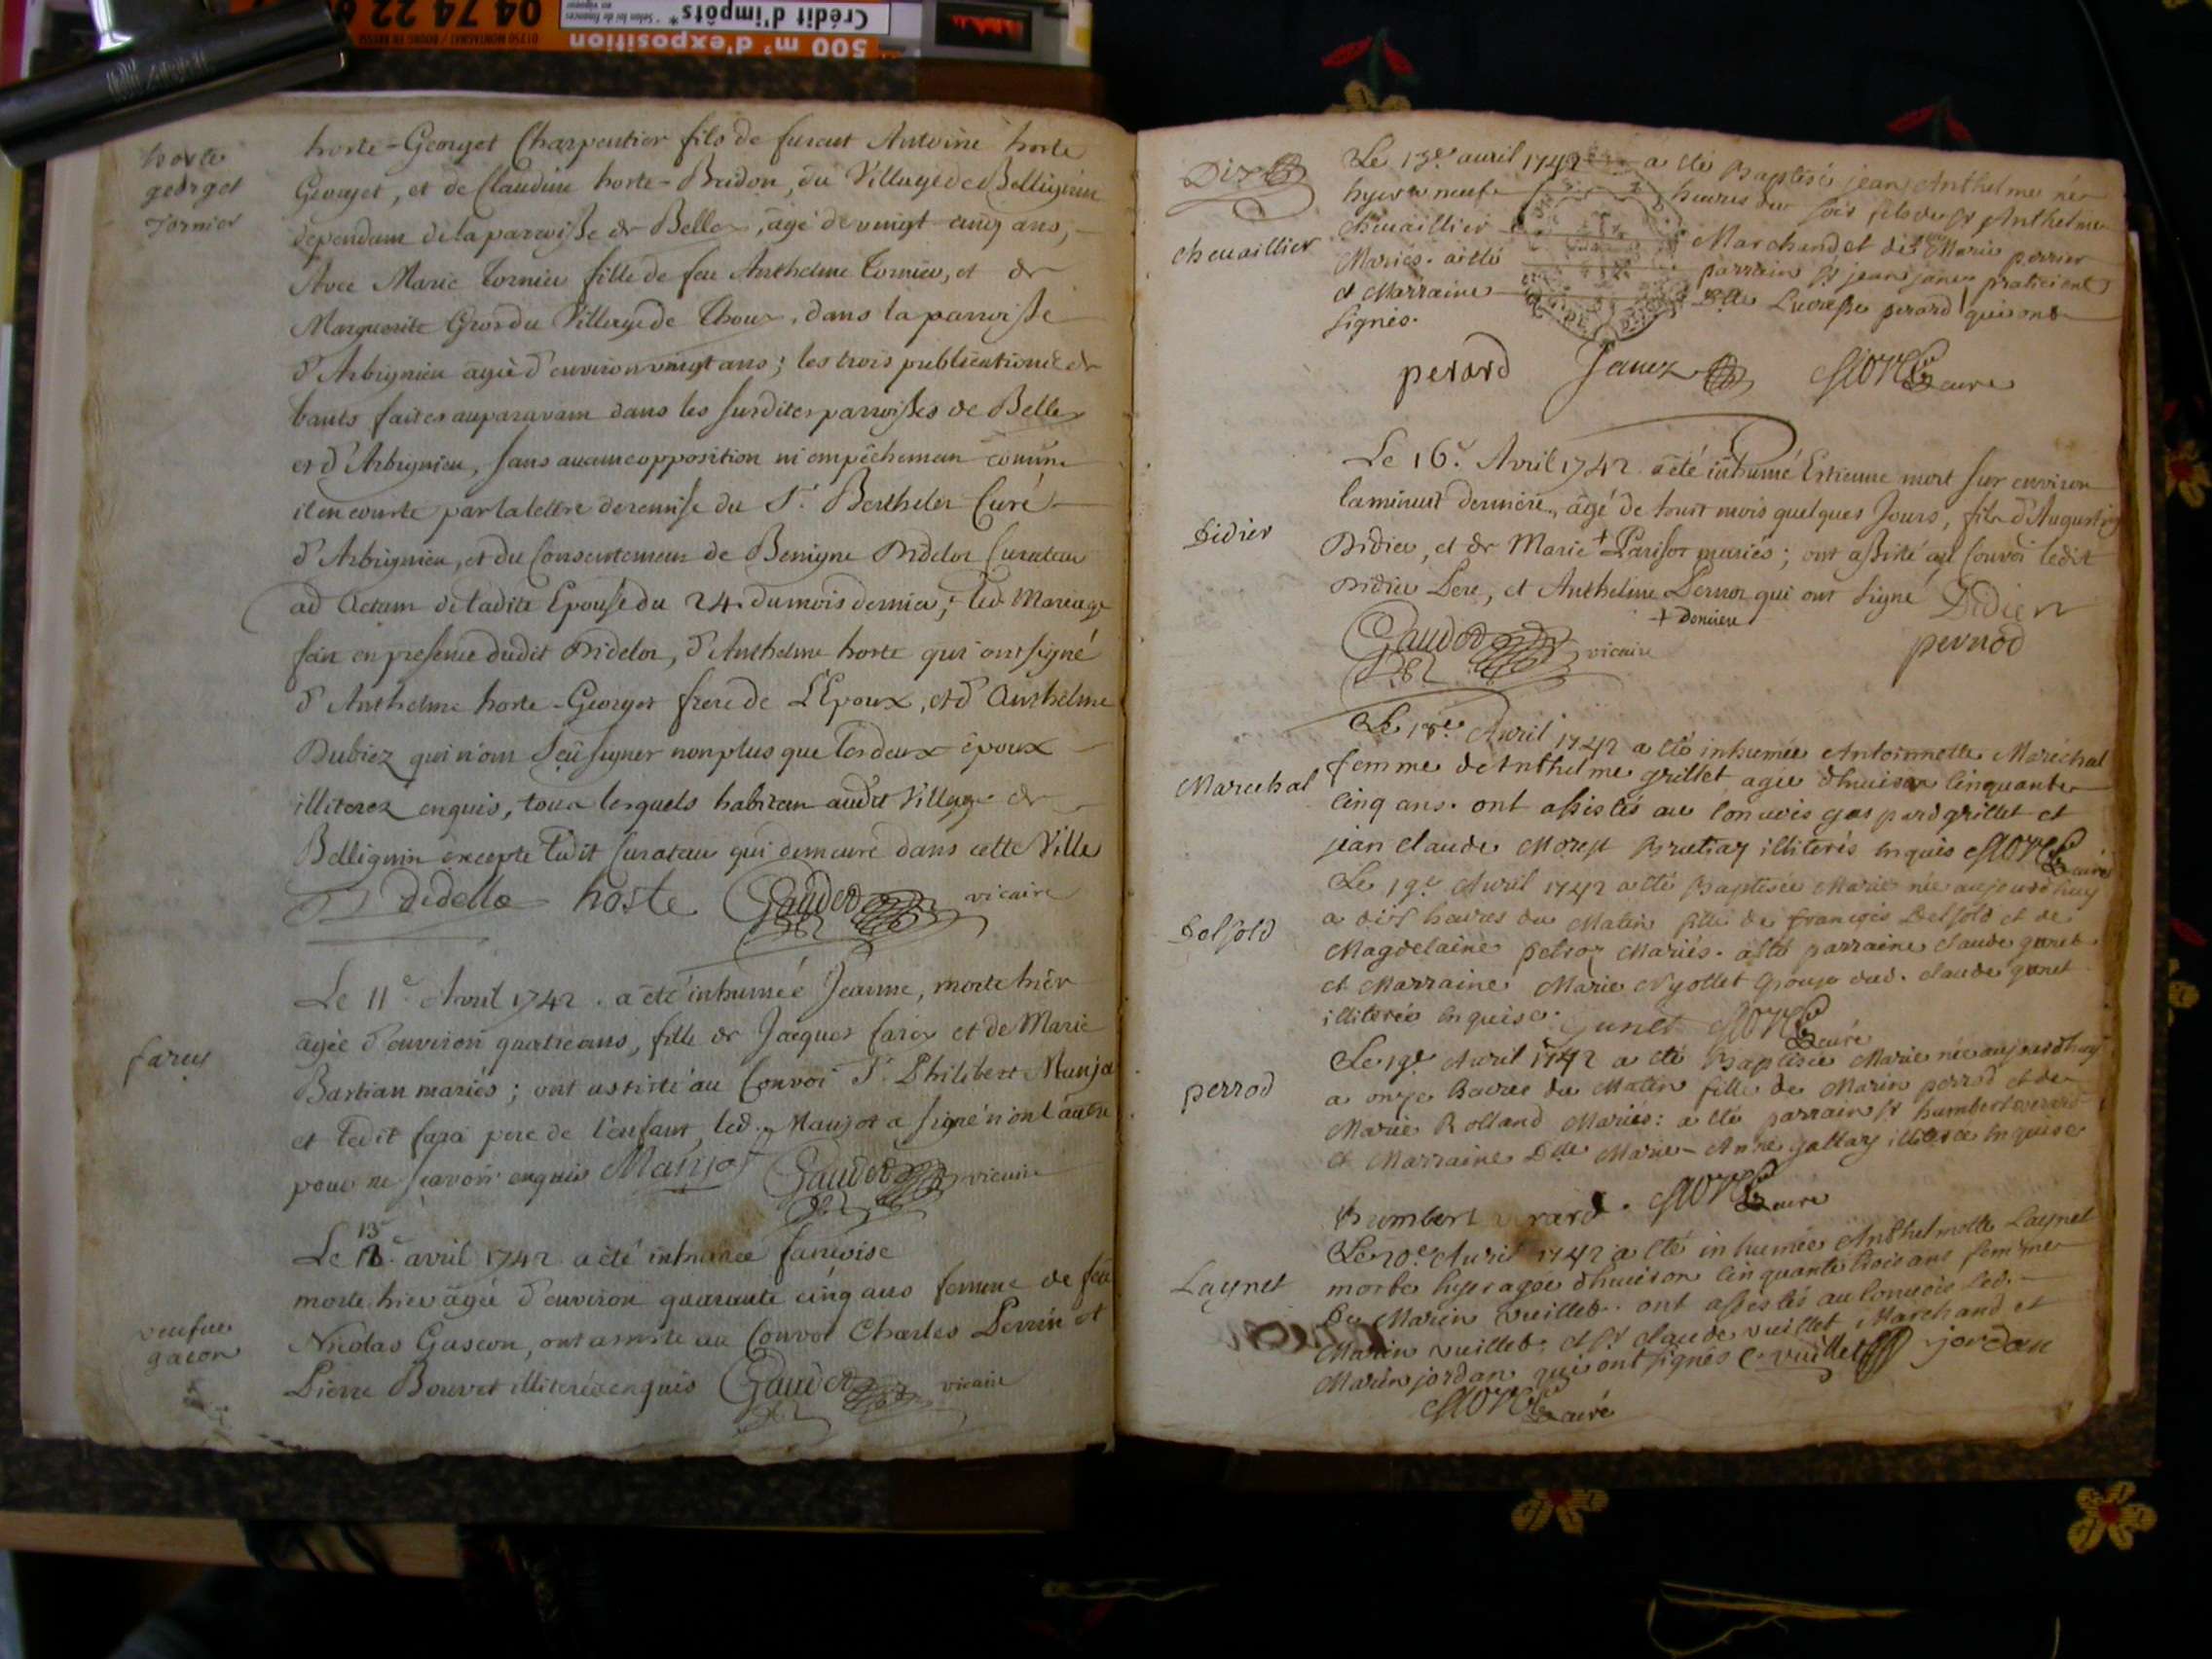 04 74 22
01250 MONTAGNAT / BOURG EN BRESSE
Crédit d'impôts*
* Selon loi de finances
en vigueur
500 m² d'exposition
horte
georget
Tornier
horte-Georget Charpentier fils de furent Antoine horte
Georget, et de Claudine horte-Bridon, du Village de Bellignin
dependant de la paroisse de Belley, agé de vingt-cinq ans,
Avec Marie Tornier fille de feu Anthelme Tornier, et de
Marguerite Gros du Village de Thoux, dans la parroisse
d'Arbignieu agée d'environ vingt ans; les trois publications de
bants faites auparavant dans les susdites parroisses de Belley
et d'Arbignieu, sans aucune opposition ni empêchement comme
il en conste par la lettre de remise du Sr. Berthelet Curé
d'Arbignieu, et du Consentement de Benigne Didelot Curateur
ad Actum de ladite Epouse du 24. du mois dernier; led. Mariage
fait en presence dudit Didelot, d'Anthelme horte qui ont signé
d'Anthelme horte-Georget frere de L'Epoux, et d'Anthelme
Dubiez qui n'ont sçu signer non plus que les deux époux
illiterez enquis, tous lesquels habitent audit Village de
Bellignin excepté ledit Curateur qui demeure dans cette Ville
Didello hoste Gaudet vicaire
farey
Le 11e Avril 1742. a été inhumée Jeanne, morte hier
agée d'environ quatre ans, fille de Jacques et de Marie
Bastian mariés; ont assisté au Convoi Sr. Philibert Manjot
et ledit pere de l'enfant, led. Manjot a signé non l'autre
pour ne sçavoir enquis Manjot Gaudet vicaire
veufue
gacon
13
Le e avril 1742 a été inhumée francoise
morte hier agée d'environ quarante cinq ans femme de feu
Nicolas Gascon, ont assisté au Convoi Charles Perrin et
Pierre Bouvet illiterés enquis Gaudet vicaire
Dix
chevaillier
Le 15e avril 1742 a été Baptisé jean Anthelme né
hyer a neuf heures du soir fils de Sr Anthelme
Chevaillier Marchand et de Marie perrier
Mariés. a été parrain Sr jean janez praticient
et Marraine Dlle Lucresse perard qui ont
signés.
perard Janez curé
Didier
Le 16e. Avril 1742 a été inhumé Estienne mort sur environ
la minuit derniere, agé de huit mois quelques Jours, fils d'Augustin
Didier, et de Marie + Parisot mariés; ont assisté au Convoi ledit
Didier Pere, et Anthelme Pernot qui ont signé Didier
+ Doniere
Gaudet vicaire pernod
Marechal
Le Avril 1742 a été inhumée Antoinnette Maréchal
femme de Anthelme grillet agée dhuiron cinquante
cinq ans. ont assistés au convois gaspard grillet et
jean claude Morest illiterés enquis curé
Delfold
Le 19e Avril 1742 a été Baptisée Marie née aujourdhuy
a dix heures du Matin fille de françois Delfold et de
Magdelaine Mariés. a été parraine claude gunet
et Marraine Marie épouse dud. claude gunet
illiterée enquise. gunet curé
perrod
Le 19e Avril 1742 a été Baptisée Marie née aujourdhuy
a onze heures du Matin fille de Marin perrod et de
Marie Rolland Mariés: a été parrain Sr humbert
et Marraine Dlle Marie-Anne Gallay illiterée enquise
humbert curé
Laynet
Le 20e Avril 1742 a été inhumée Anthelmette Laynet
morte hyer agée dhuiron cinquante trois ans femme
De Marin vuillet. ont assistés au convois led.
Marin vuillet, et Sr claude vuillet Marchand et
Marin jordan qui ont signés C. vuillet jordan
curé